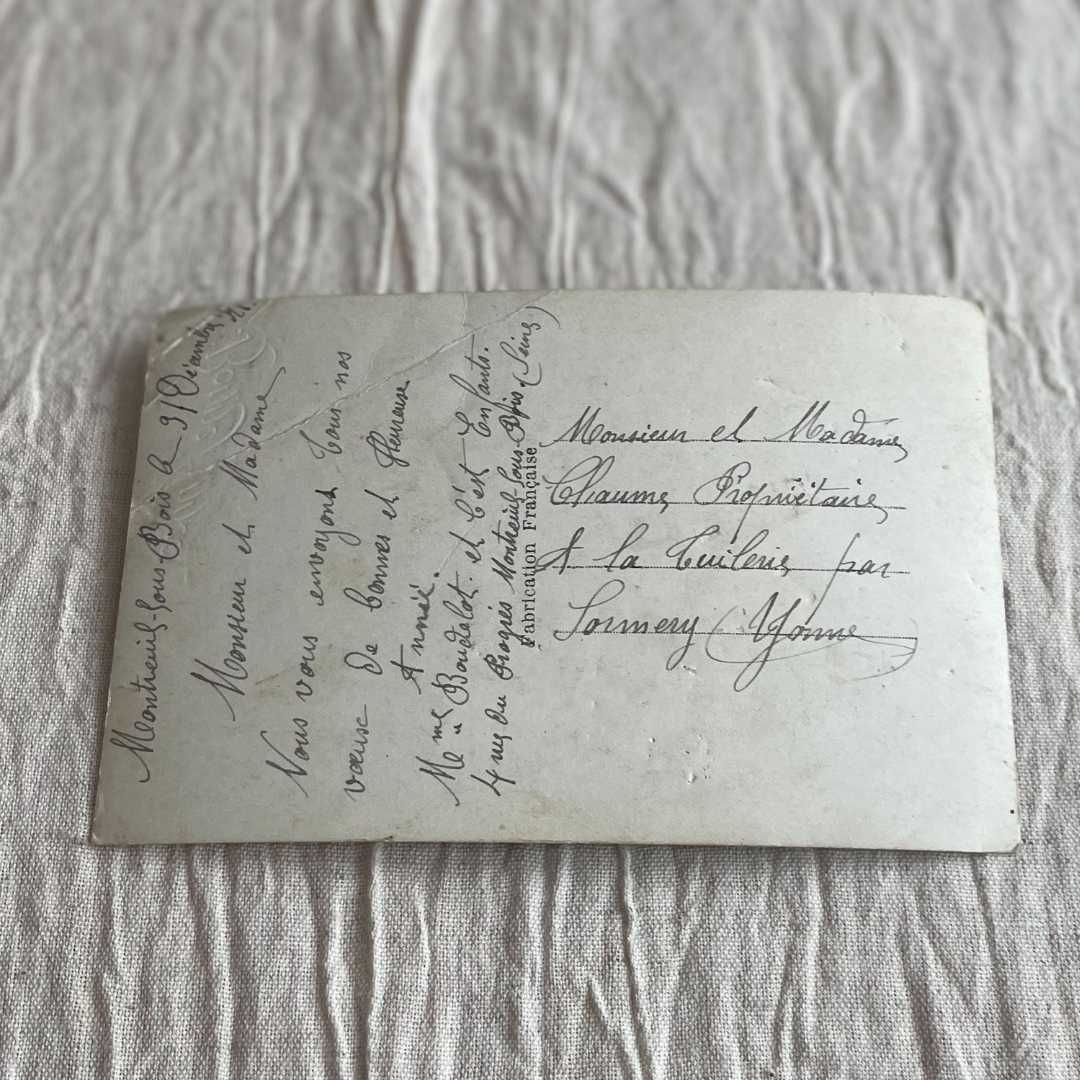 Montreuil-Sous-Bois le 31 Décembre
Monsieur et Madame
Nous vous envoyons tous nos
vœuse de bonnes et Heureuse
Année.
Mme Boudalot et C'est Enfants.
4 rue du Progrès Montreuil-Sous-Bois (Seine)
Fabrication Française
Monsieur et Madame
Chaume Propriétaire
A la Tuilerie par
Sormery (Yonne)